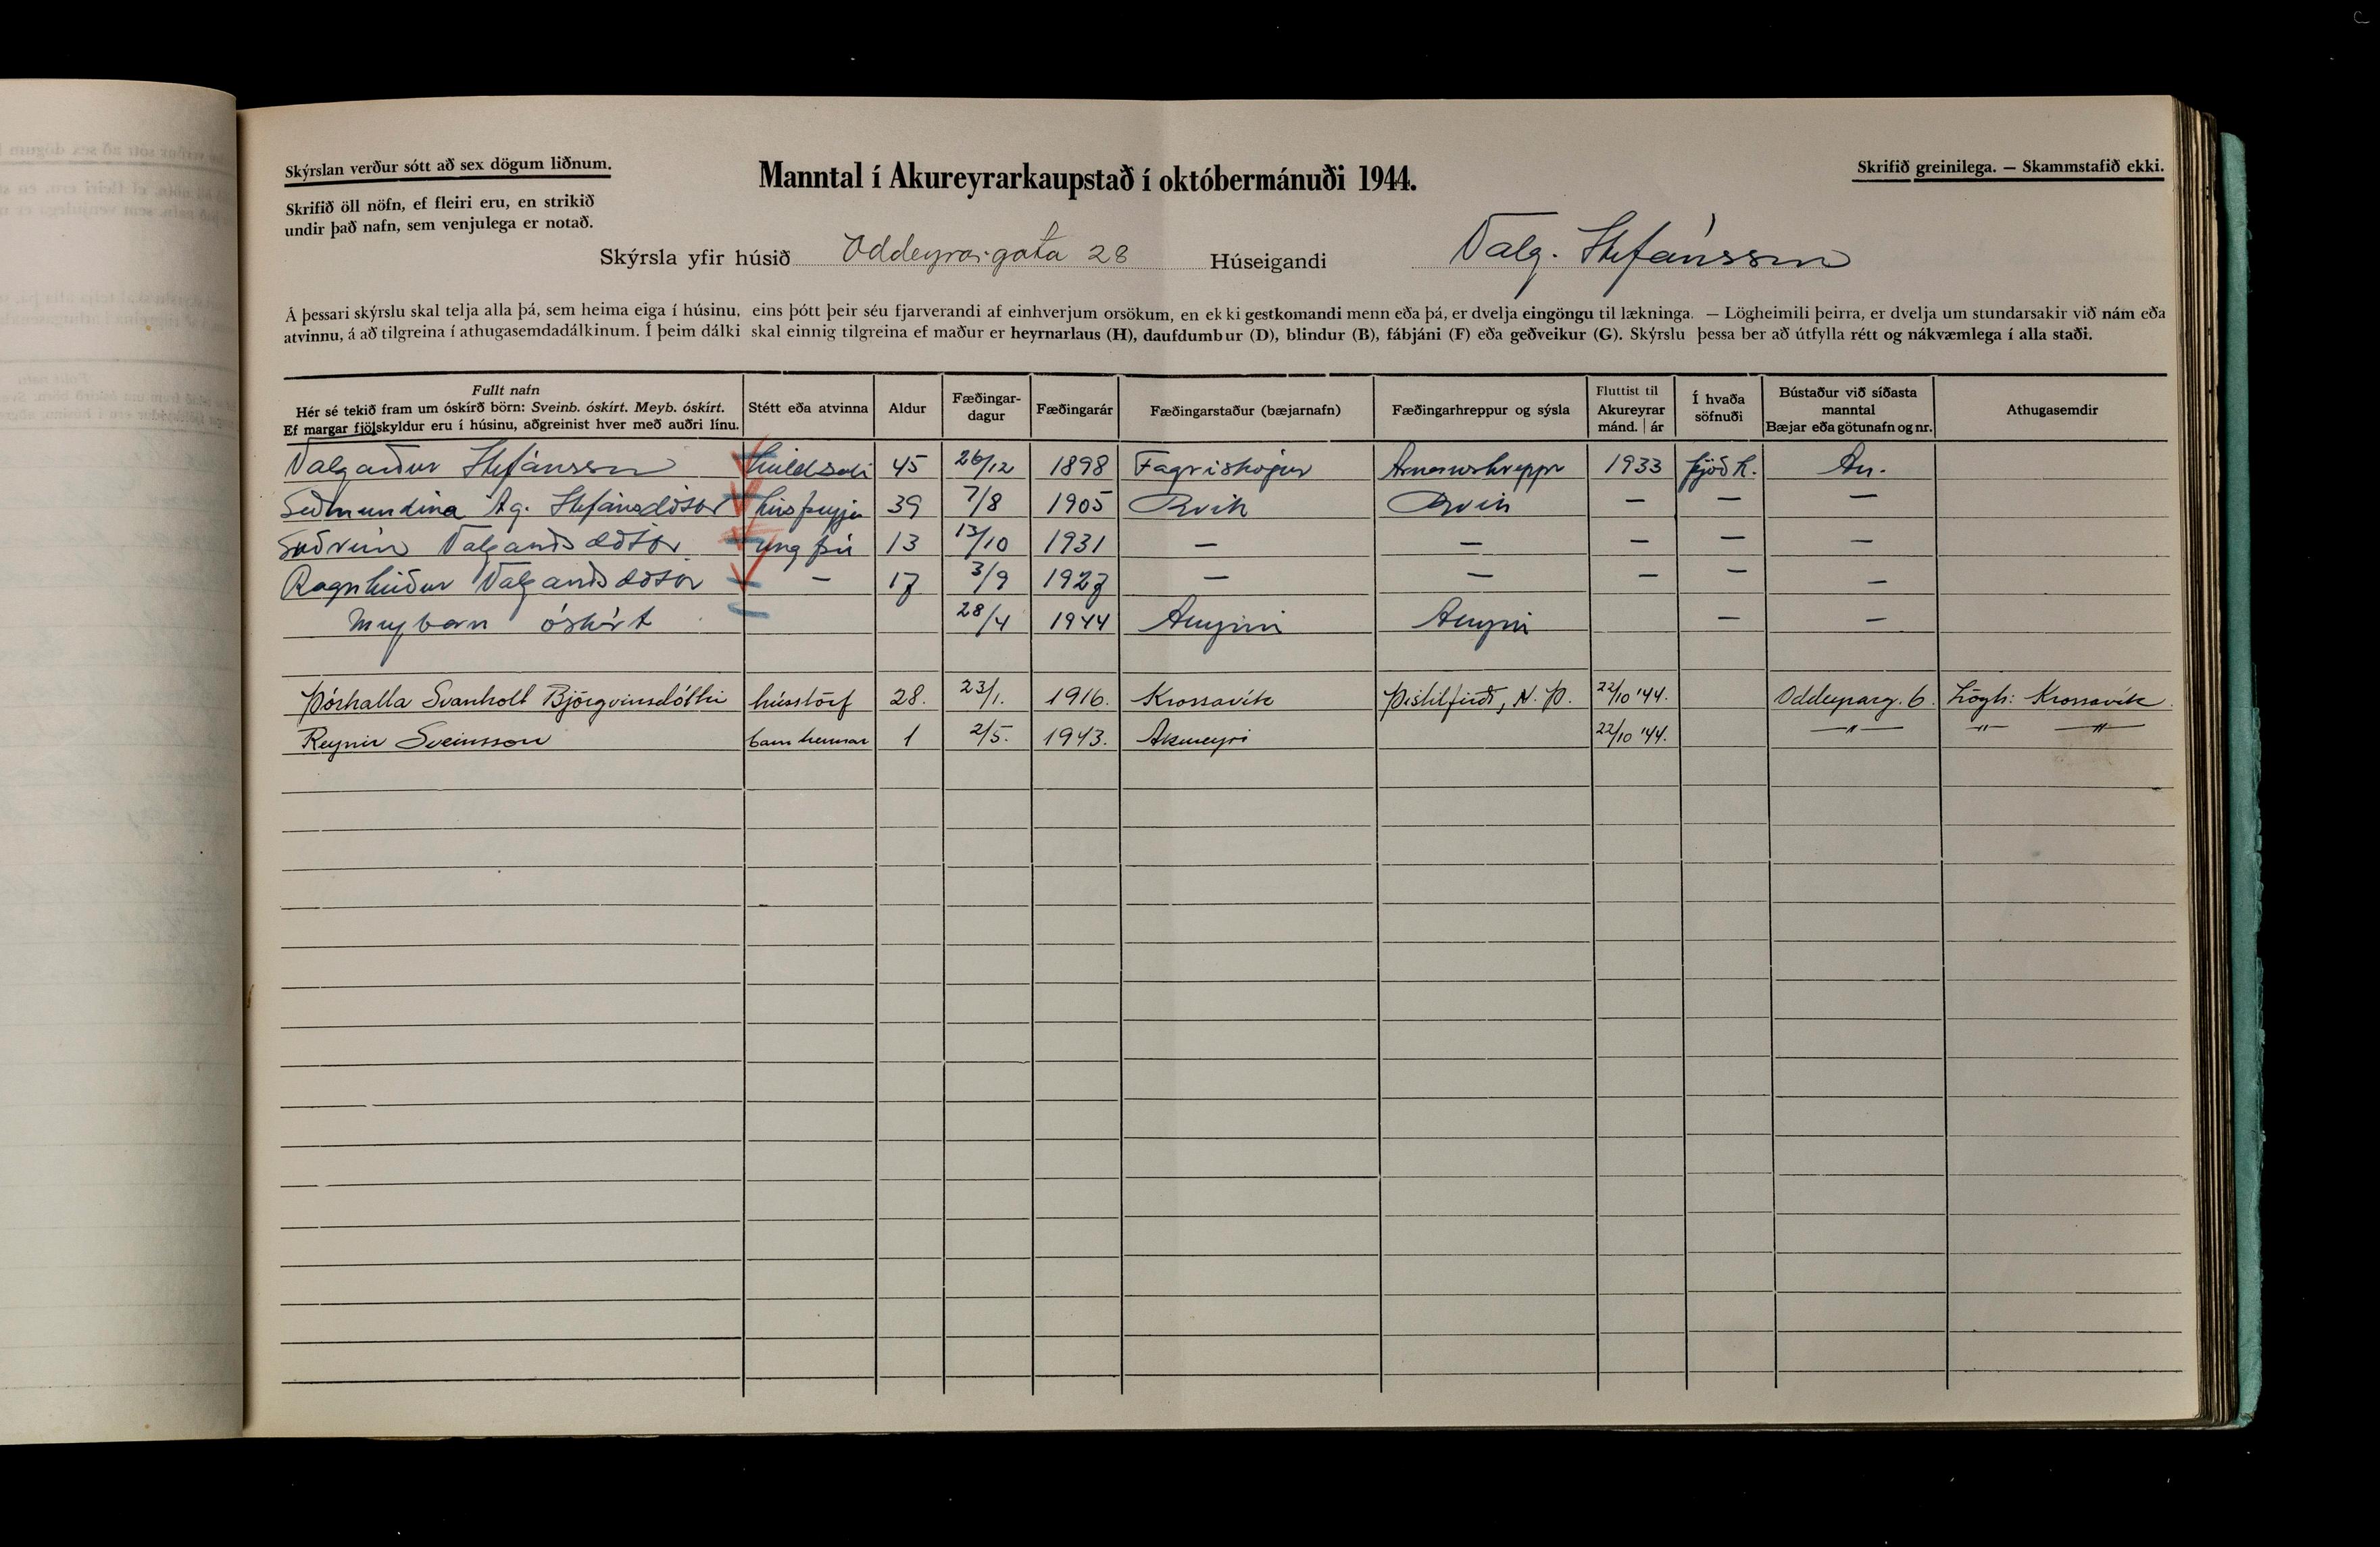 Skýrslan verður sótt að sex dögum liðnum.
Manntal í Akureyrarkaupstað í októbermánuði 1944.
Skrifið greinilega. — Skammstafið ekki.
Skrifið öll nöfn, ef fleiri eru, en strikið
undir það nafn, sem venjulega er notað.
Skýrsla yfir húsið Oddeyrargata 28 Húseigandi Valg. Stefánsson
Á þessari skýrslu skal telja alla þá, sem heima eiga í húsinu, eins þótt þeir séu fjarverandi af einhverjum orsökum, en ekki gestkomandi menn eða þá, er dvelja eingöngu til lækninga. — Lögheimili þeirra, er dvelja um stundarsakir við nám eða
atvinnu, á að tilgreina í athugasemdadálkinum. Í þeim dálki skal einnig tilgreina ef maður er heyrnarlaus (H), daufdumbur (D), blindur (B), fábjáni (F) eða geðveikur (G). Skýrslu þessa ber að útfylla rétt og nákvæmlega í alla staði.
Fullt nafn
Hér sé tekið fram um óskírð börn: Sveinb. óskírt. Meyb. óskírt.
Ef margar fjölskyldur eru í húsinu, aðgreinist hver með auðri línu.
Stétt eða atvinna
Aldur
Fæðingar-
dagur
Fæðingarár
Fæðingarstaður (bæjarnafn)
Fæðingarhreppur og sýsla
Fluttist til
Akureyrar
mánd. | ár
Í hvaða
söfnuði
Bústaður við síðasta
manntal
Bæjar eða götunafn og nr.
Athugasemdir
Valgarður Stefánsson heildsali 45 26/12 1898 Fagriskógur Arnarneshreppr 1933 þjóðk. Ak.
Guðmundína Ag. Stefánsdóttir húsfreyja 39 7/8 1905 Rvík Rvík — — —
Guðrún Valgarðsdóttir ung frú 13 13/10 1931 — — — — —
Ragnheiður Valgarðsdóttir — 17 3/9 1927 — — — — —
Meybarn óskírt 28/4 1944 Akureyri Akureyri — —
Þórhalla Svanholt Björgvinsdóttir hússtörf 28. 23/1. 1916. Krossavík Þistilfirði, N. Þ. 22/10 '44. Oddeyrarg. 6. Lögh: Krossavík.
Reynir Sveinsson barn hennar 1 2/5. 1943. Akureyri 22/10 '44. —"— —"— —"—